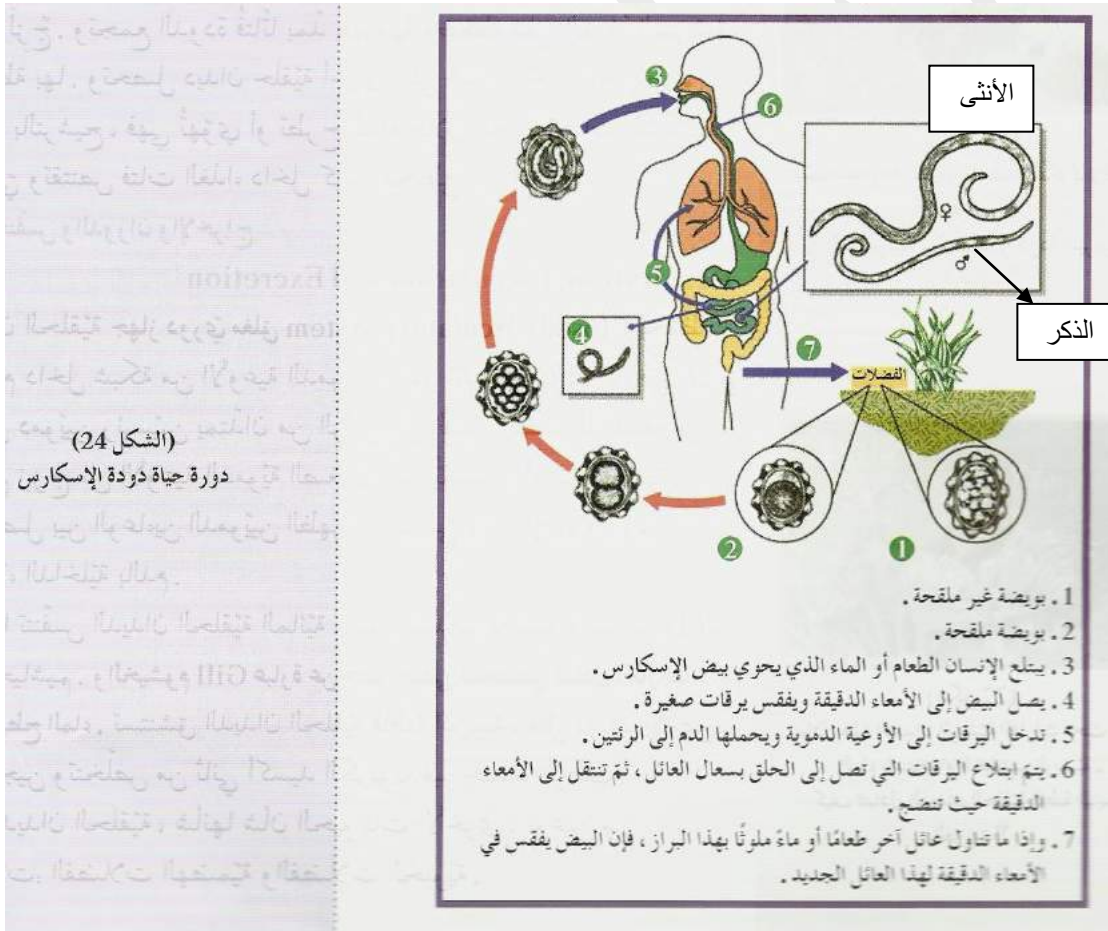 الأنثى
الذكر
3
6
♀
♂
5
4
7
الفضلات
2
1
(الشكل 24)
دورة حياة دودة الإسكارس
1. بويضة غير ملقحة.
2. بويضة ملقحة.
3. يبتلع الإنسان الطعام أو الماء الذي يحوي بيض الإسكارس.
4. يصل البيض إلى الأمعاء الدقيقة ويفقس يرقات صغيرة.
5. تدخل اليرقات إلى الأوعية الدموية ويحملها الدم إلى الرئتين.
6. يتم ابتلاع اليرقات التي تصل إلى الحلق بسعال العائل، ثمّ تنتقل إلى الأمعاء
الدقيقة حيث تنضج.
7. وإذا ما تناول عائل آخر طعامًا أو ماءً ملوثًا بهذا البراز، فإن البيض يفقس في
الأمعاء الدقيقة لهذا العائل الجديد.